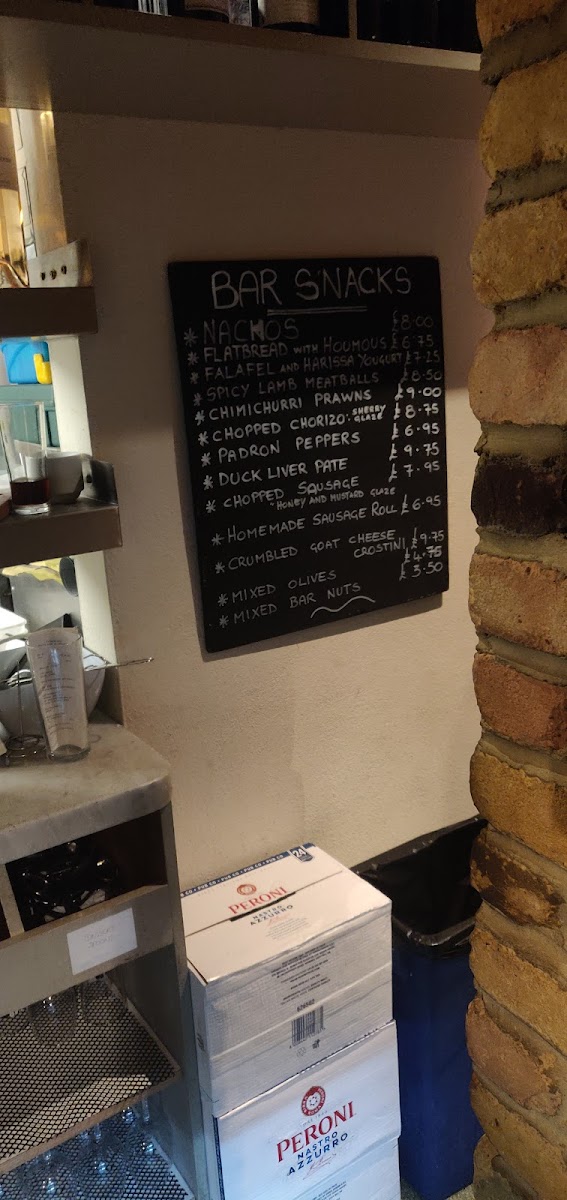 BAR SNACKS
* NACHOS £8.00
* FLATBREAD WITH HOUMOUS £6.75
* FALAFEL AND HARISSA YOUGURT £7.25
* SPICY LAMB MEATBALLS £8.50
* CHIMICHURRI PRAWNS £9.00
* CHOPPED CHORIZO: SHERRY GLAZE £8.75
* PADRON PEPPERS £6.95
* DUCK LIVER PATE £9.75
* CHOPPED SAUSAGE £7.95
HONEY AND MUSTARD GLAZE
* HOMEMADE SAUSAGE ROLL £6.95
* CRUMBLED GOAT CHEESE CROSTINI £9.75
* MIXED OLIVES £4.75
* MIXED BAR NUTS £3.50
24
PERONI
NASTRO
AZZURRO
PERONI
NASTRO
AZZURRO